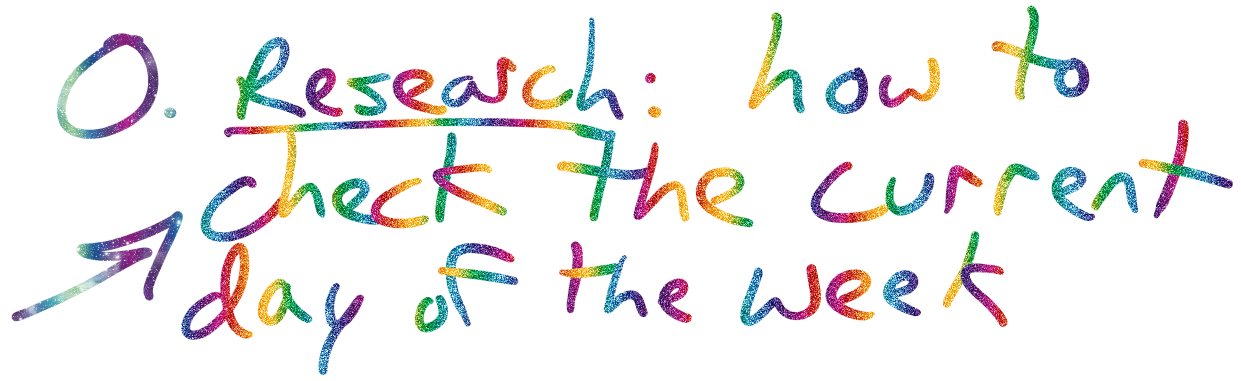 0. Research: how to
check the current
day of the week